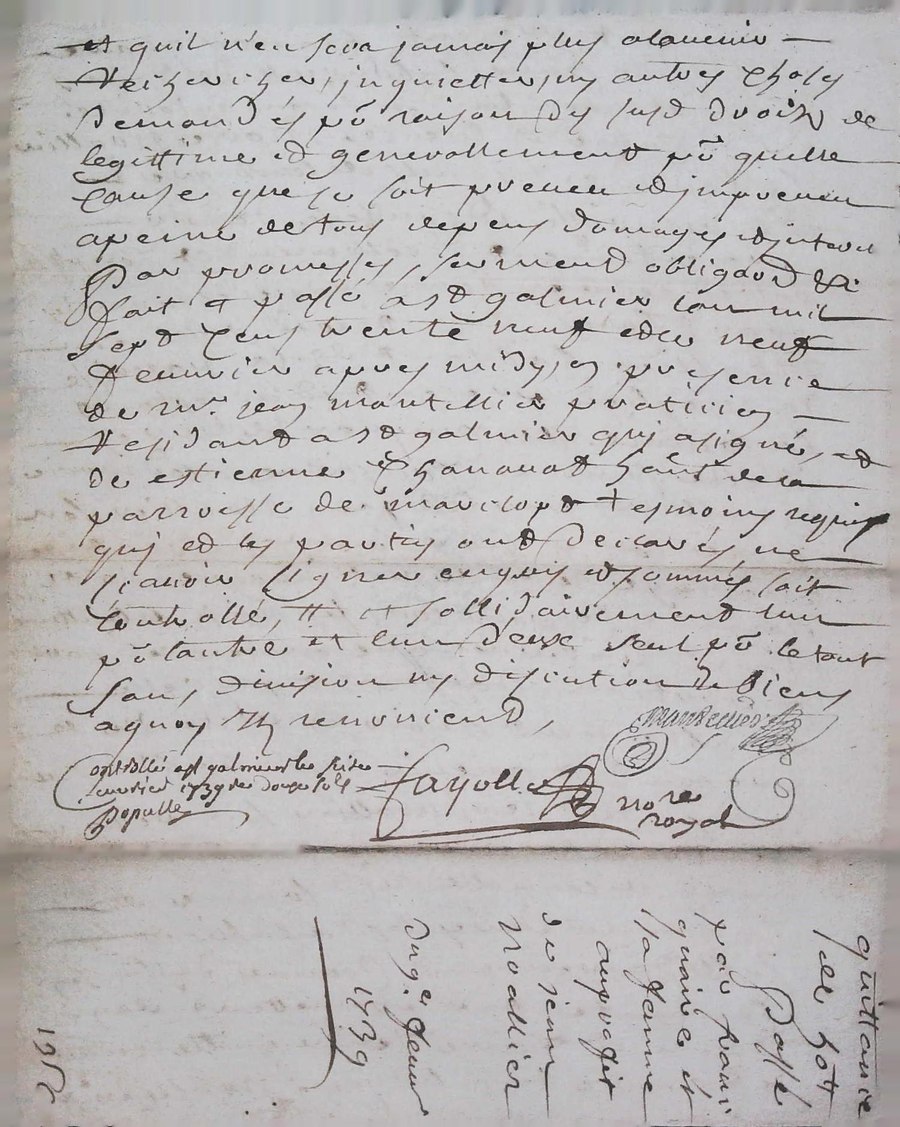 et quil n'en sera jamais plus alavenir
recherchés, inquiettés, ny autres choses
demandés po͞ raison des susd droits de
legittime et generallement po͞ quelle
cause que se soit preveu et impreveu
apeine de tous depens domages et interet
Par promesses, serment obligaon͞ &c.
fait et passé a st galmier lan mil
sept cens trente neuf et le neuf
Jeanvier apres midy, en presence
de mr. jean mantellier praticien
residant a st galmier qui a signé, et
de estienne Thanauat hañt de la
parroisse de mauclopt tesmoins requis
qui et les parties ont declarés ne
scauoir signer enquis et sommés soit
controllé, # et sollidairement lun
po͞ lautre et lun deux seul po͞ le tout
sans division ny discution de biens
aquoy ils renoncent,
Mantellier
Controllé a st galmier le seize
Janvier 1739 re douze sols
Populle
fayolle nore
royal
quittance
de 50tt
Passé
par
et
sa femme
au profit
de jean
noallier
du 9e Janvr
1739